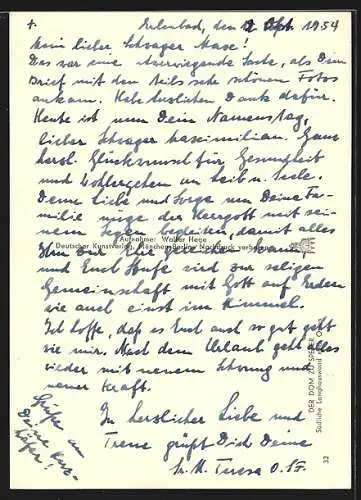 +. Erlenbad, den 12. Okt. 1954
Mein lieber Schwager Maxe!
Das war eine Sache, als Dein
Brief mit den teils sehr schönen Fotos
ankam. Habe herzlichen Dank dafür.
Heute ist nun Dein Namenstag,
lieber Schwager Maximilian. Ganz
herzl. Glückwunsch für Gesundheit
und Wohlergehen an Leib u. Seele.
Deine Liebe und Sorge um Deine Fa-
milie möge der Herrgott mit sei-
nem Segen begleiten, damit alles
Ihm zur Ehre
Aufnahme: Walter Hege
Deutscher Kunstverlag, München-Berlin Nachdruck verboten
und Euch wird zur seligen
Gemeinschaft mit Gott auf Erden
wie auch einst im Himmel.
Ich hoffe, daß es Euch auch so gut geht
wie mir. Nach dem Urlaub geht alles
wieder mit neuem Schwung und
neuer Kraft.
In herzlicher Liebe und
Treue grüßt Dich Deine
Sr. M. Teresa O.SF.
Grüße an
Deine
DER DOM ZU SPEYER
Südliche Langhauswand
32